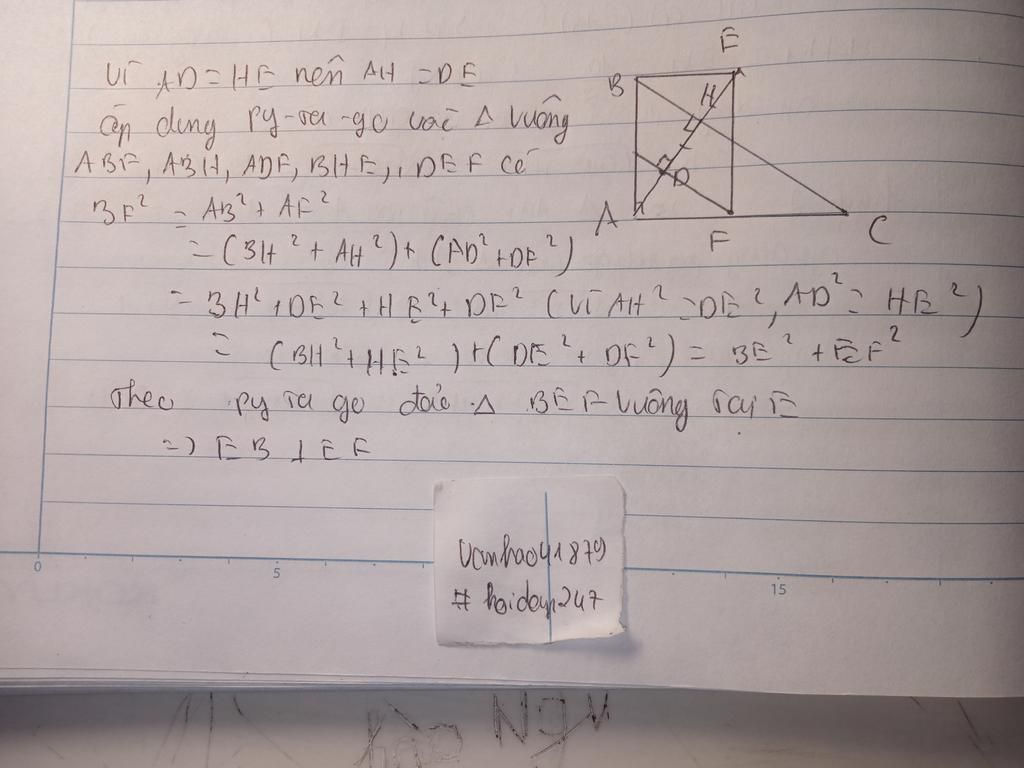 Vì AD = HE nên AH = DE
áp dụng Py-ta-go vào Δ vuông
ABF, ABH, ADF, BHE, DEF có
BF² = AB² + AF²
= (BH² + AH²) + (AD² + DF²)
= BH² + DE² + HE² + DF² (Vì AH² = DE², AD² = HE²)
= (BH² + HE²) + (DE² + DF²) = BE² + EF²
Theo py ta go đảo Δ BEF vuông tại E
=> EB ⊥ EF
E
B
H
D
A
F
C
vanhao41879
# hoidap247
0 5 15